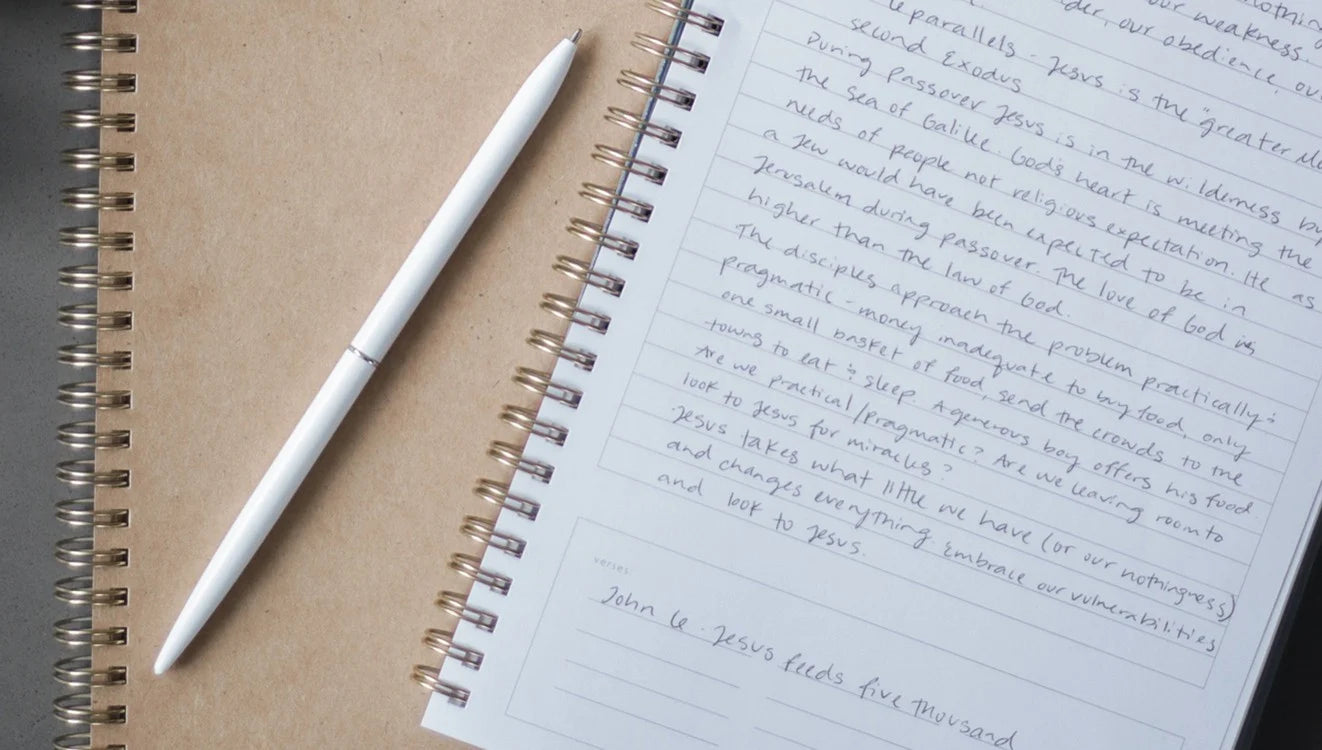 nothing
our weakness.
der, our obedience, ou
parallels - Jesus is the "greater Mo
second Exodus
During passover Jesus is in the wilderness by
the sea of Galilee. God's heart is meeting the
needs of people not religious expectation. He as
a Jew would have been expected to be in
Jerusalem during passover. The love of God is
higher than the law of God.
The disciples approach the problem practically &
pragmatic - money inadequate to buy food, only
one small basket of food, send the crowds to the
towns to eat & sleep. A generous boy offers his food.
Are we practical/pragmatic? Are we leaving room to
look to Jesus for miracles?
Jesus takes what little we have (or our nothingness)
and changes everything. Embrace our vulnerabilities
and look to Jesus.
verses
John 6. Jesus feeds five thousand